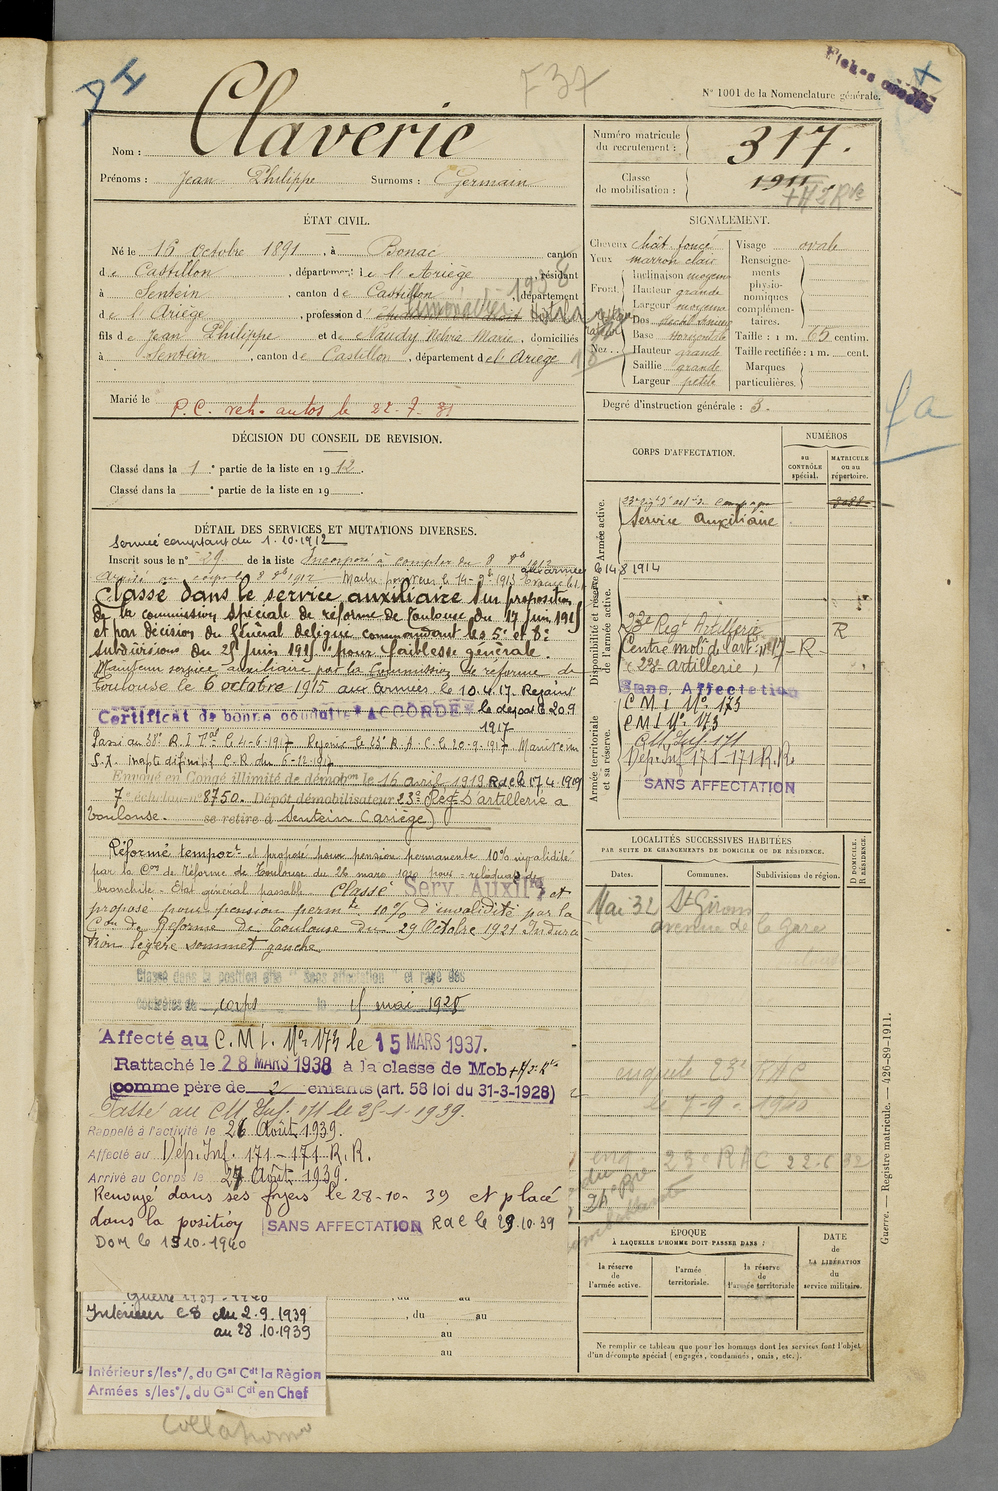 F 37
Fiches
N° 1001 de la Nomenclature générale.
Nom : Claverie
Prénoms : Jean Philippe Surnoms : Germain
Numéro matricule du recrutement : 317.
Classe de mobilisation : 1911
ÉTAT CIVIL.
Né le 16 Octobre 1891, à Bonac canton
de Castillon, département de l'Ariège, résidant
à Sentein, canton de Castillon, département
de l'Ariège, profession d'
fils de Jean Philippe et de Naudy Marie, domiciliés
à Sentein, canton de Castillon, département de l'Ariège
Marié le
P.C. veh. autos le 22-7-31
SIGNALEMENT.
Cheveux chât. foncé
Yeux marron clair
Front. Inclinaison moyen
Hauteur grande
Largeur moyenne
Nez... Dos
Base Horizontale
Hauteur grande
Saillie grande
Largeur petite
Visage ovale
Renseignements physionomiques complémentaires.
Taille : 1 m. 65 centim.
Taille rectifiée : 1 m. cent.
Marques particulières.
Degré d'instruction générale : 3.
DÉCISION DU CONSEIL DE REVISION.
Classé dans la 1e partie de la liste en 1912.
Classé dans la e partie de la liste en 19
DÉTAIL DES SERVICES ET MUTATIONS DIVERSES.
Service comptant du 1.10.1912
Inscrit sous le n° 29 de la liste Incorporé à compter du 8 8bre 1912
Arrivé au corps le 8 8bre 1912
aux armées le 14 8 1914
Classé dans le service auxiliaire sur proposition
de la commission spéciale de réforme de Toulouse du 17 Juin 1915
et par décision du Général délégué commandant les 5e et 6e
subdivisions du 25 Juin 1915 pour faiblesse générale.
Maintenu service auxiliaire par la Commission de réforme de
Toulouse le 6 octobre 1915 aux armées le 10.4.17. Rejoint
le dépôt le 20.9
1917
Certificat de bonne conduite "ACCORDÉ"
Passé au 88e R.I. le 4-6-1917 Rejoint le 23e R.A.C. le 20-9-1917 Maintenu
S.X. inapte définitif C.R. du 6-12-1917
Envoyé en Congé illimité de démobon le 16 avril 1919 Rac le 17.4.1919
7e échelon n° 8750. Dépôt démobilisateur 23e Régt d'artillerie à
Toulouse. se retire à Sentein (Ariège)
Réformé tempore et proposé pour pension permanente 10% invalidité
par la Con de Réforme de Toulouse du 26 mars 1920 pour : reliquat de
bronchite - Etat général passable Classé Serv. Auxilre et
proposé pour pension permte 10% d'invalidité par la
Con de Réforme de Toulouse du 29 Octobre 1921 Indura
tion légère sommet gauche
Classé dans la position dite "sans affectation" et rayé des
contrôles du corps le 15 mai 1928
Affecté au C.M.I. No 173 le 15 MARS 1937.
Rattaché le 28 MARS 1938 à la classe de Mob
comme père de 2 enfants (art. 58 loi du 31-3-1928)
Passé au CM Inf. 171 le 25-1-1939.
Rappelé à l'activité le 26 Août 1939.
Affecté au Dép. Inf. 171 - 171 R.R.
Arrivé au Corps le 27 Août 1939.
Renvoyé dans ses foyers le 28-10-39 et placé
dans la position SANS AFFECTATION Rac le 29.10.39
DOM le 15 10-1940
Guerre 1939-1940
Intérieur CS du 2.9.1939
au 28.10.1939
Intérieur s/les °/° du Gal Cdt la Région
Armées s/les °/° du Gal Cdt en Chef
, du au
au
au
CORPS D'AFFECTATION.
NUMÉROS
au CONTRÔLE spécial.
MATRICULE ou au répertoire.
Armée active.
23e régt d'artie de campagne
Service auxiliaire
Disponibilité et réserve de l'armée active.
23e Régt Artillerie R
Centre mobr de l'art. n° 17 - R -
(23e artillerie)
Sans Affectation
C M I No 173
CMI No 173
CM Inf. 171
Armée territoriale et sa réserve.
Dép. Inf 171 - 171 R.R.
SANS AFFECTATION
LOCALITÉS SUCCESSIVES HABITÉES
PAR SUITE DE CHANGEMENTS DE DOMICILE OU DE RÉSIDENCE.
Dates. Communes. Subdivisions de région.
D DOMICILE. R RÉSIDENCE.
Mai 32 St Girons
avenue de la Gare
enquête 23e RAC
le 7-9-1910
23e RAC 22-6-32
ÉPOQUE
À LAQUELLE L'HOMME DOIT PASSER DANS :
la réserve de l'armée active.
l'armée territoriale.
la réserve de l'armée territoriale
DATE de LA LIBÉRATION du service militaire.
Ne remplir ce tableau que pour les hommes dont les services font l'objet
d'un décompte spécial (engagés, condamnés, omis, etc.).
Guerre. — Registre matricule. — 426-89-1911.